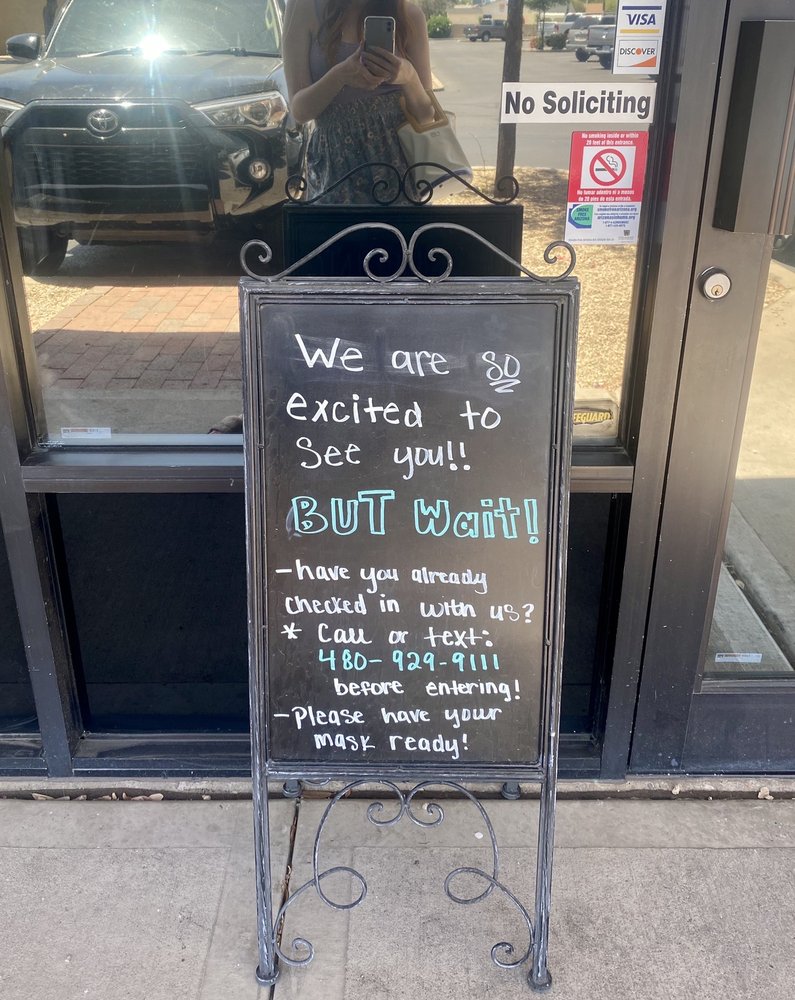 VISA
DISCOVER
No Soliciting
No smoking inside or within
20 feet of this entrance.
No fumar adentro ni a menos
de 20 pies de esta entrada.
SMOKE
FREE
ARIZONA
We are so
excited to
see you!!
BUT Wait!
-have you already
checked in with us?
* Call or text:
480-929-9111
before entering!
-Please have your
mask ready!